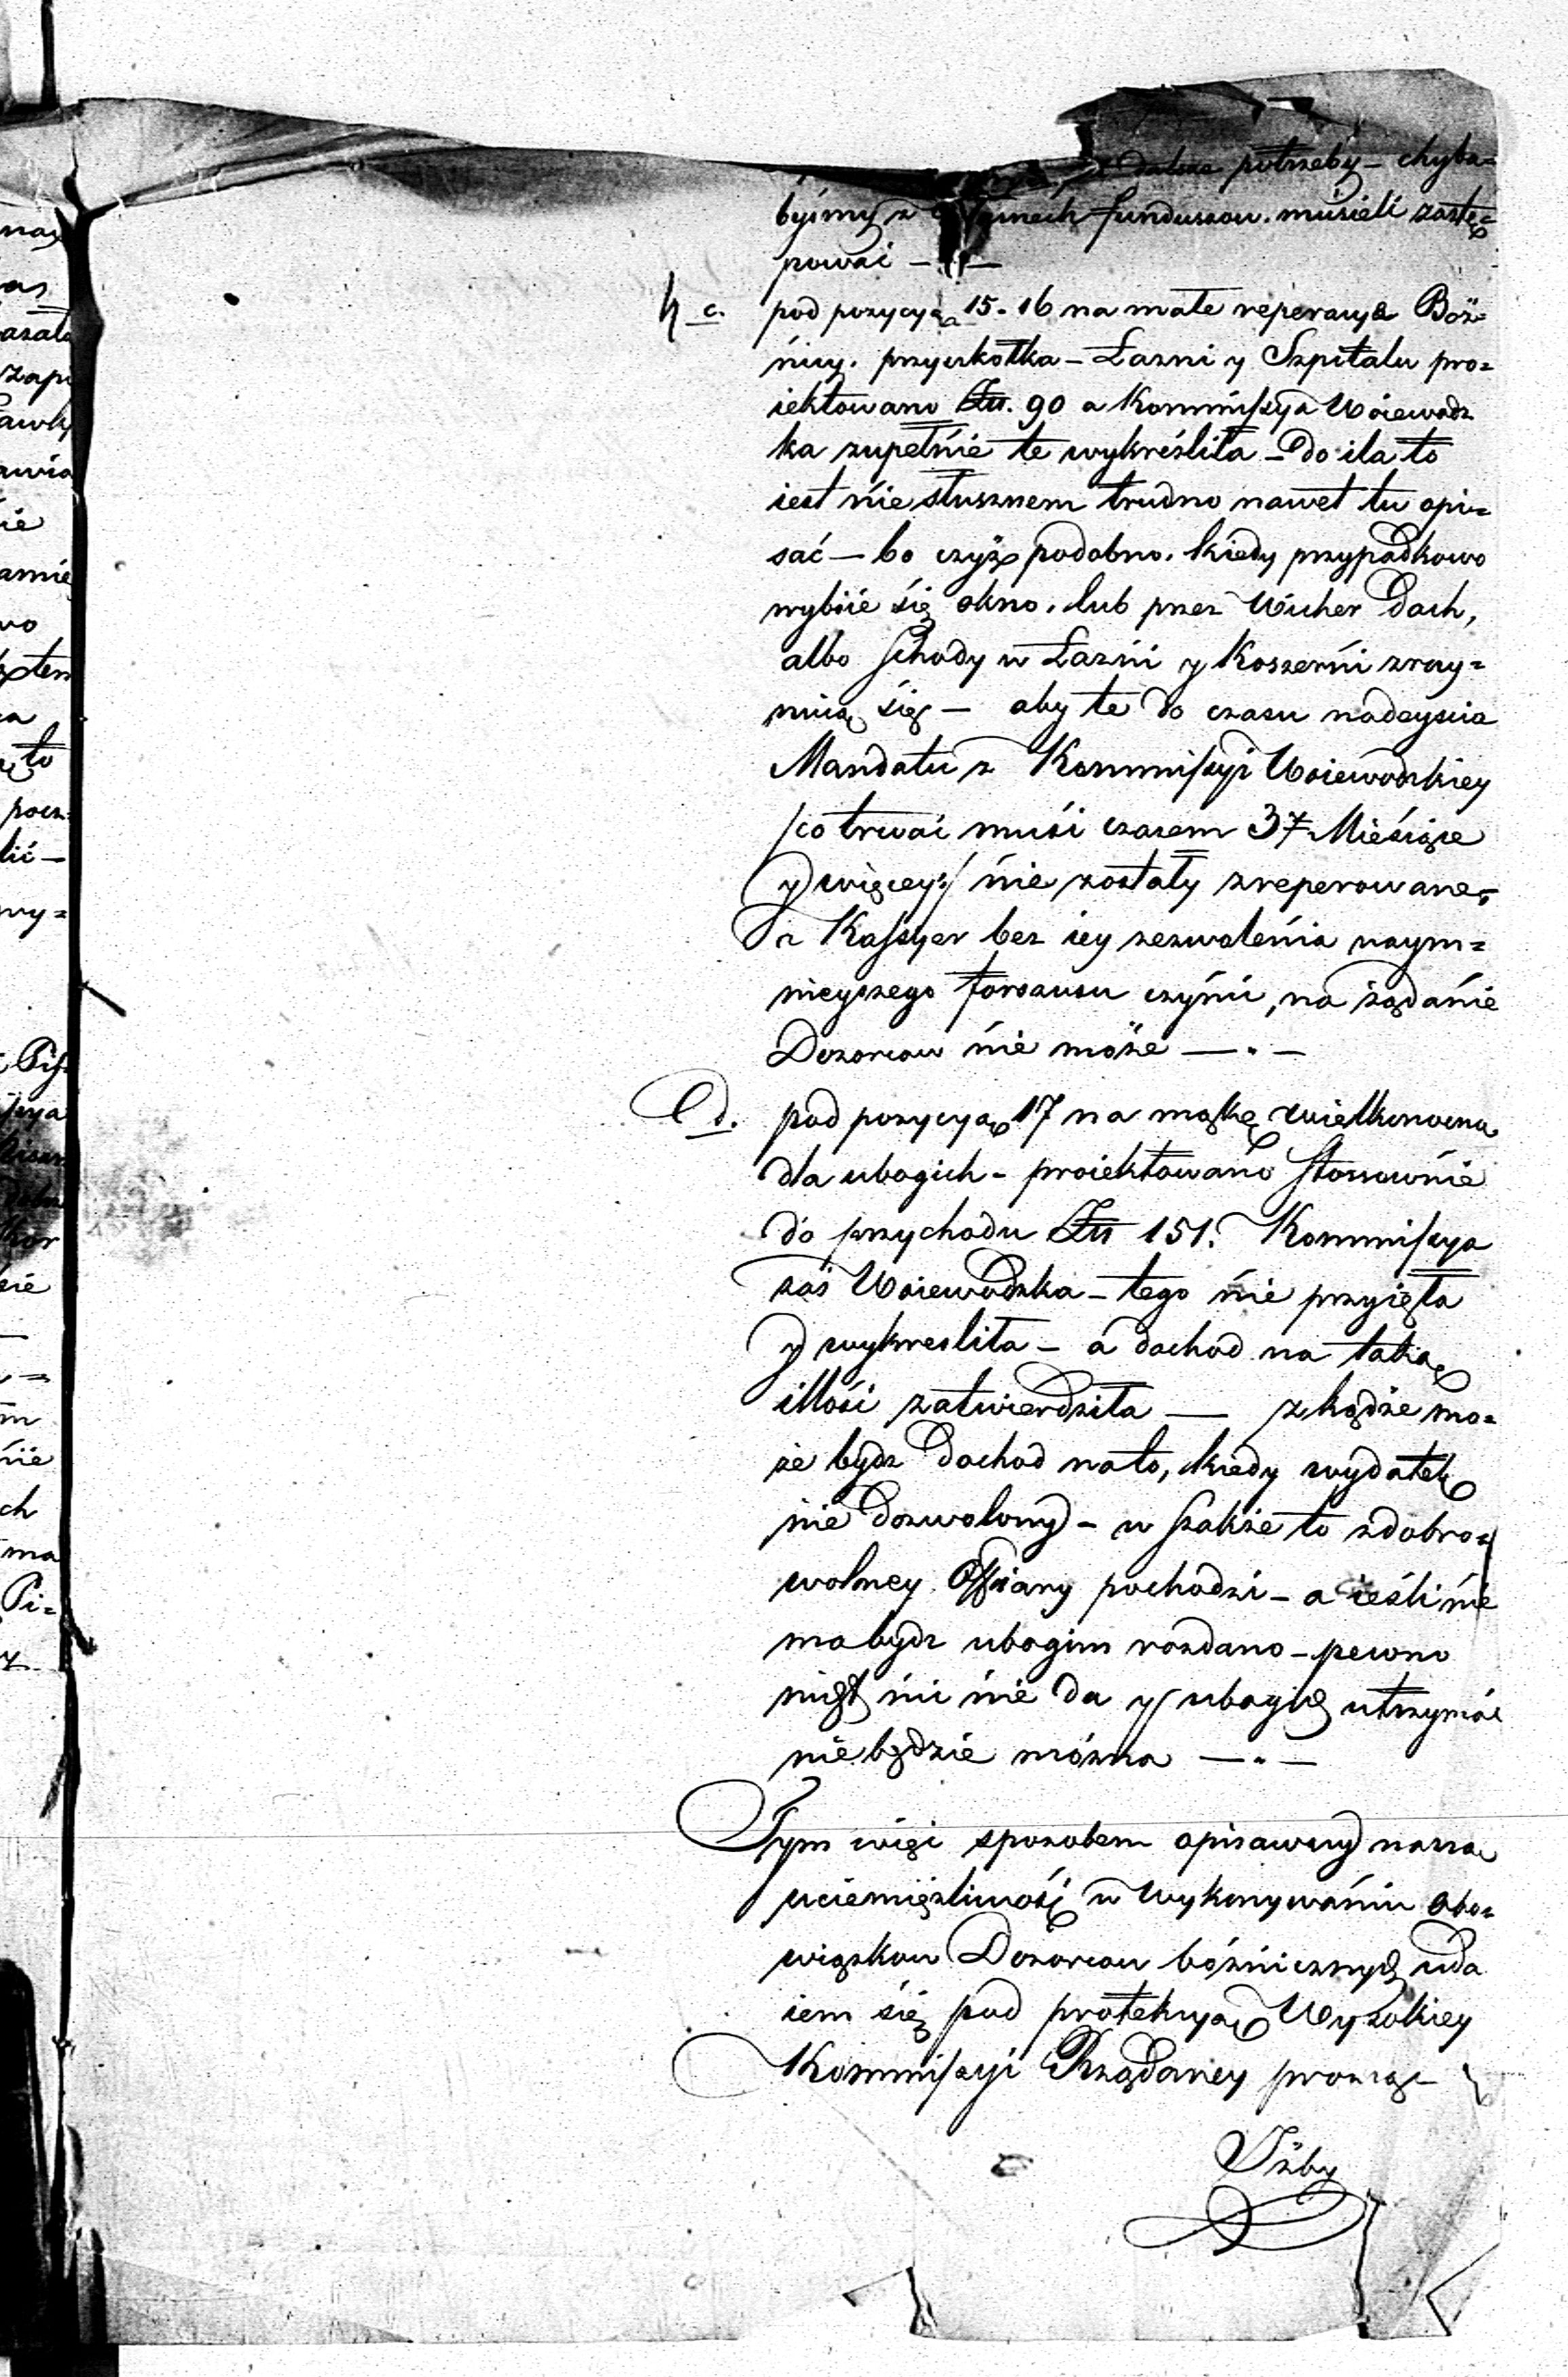 dalsze potrzeby – chyba=
byśmy z funduszow musieli zastę=
powai –
c. pod pozycyą 15. 16 na małe reperacye Böż=
nicy. przyszkołka – Łazni y Szpitalu pro=
iektowano Zł. 90 a Kommissya Woiewodz
ka zupełnie te wykréśliła – Do ila to
iest niesłusznem trudno nawet tu opi=
sać – bo czyż podobno. kiedy przypadkowo
wybiie się okno. lub przez Wicher Dach,
albo schody w Łazni y Koszerni zruy=
nuią się – aby te do czasu nadeyscia
Mandatu z Kommissyi Woiewodzkiey
/co trwai musi czasem 37 Miesiące
y więcey:/ nie zostały zreperowane,
a Kassyer bez iey zezwolenia naym=
nieyszego forszusu czynić, na żądanie
Dozorcow nie może — . —
d. pod pozycyą 17 na mąkę wielkonocną
dla ubogich – proiektowano stosownie
do przychodu Zł 151. Kommissya
zaś Woiewodzka – tego nie przyięła
y wykreslita – a dochod na taką
illość zatwierdziła — zkądże mo=
że bydz dochod nato, kiedy wydatek
nie dozwolony – w szakże to zdobro=
wolney Offiary pochodzi – a ieśli nie
mabydz ubogim rozdano – pewno
nikt nic nie da y ubogich utrzymać
niebędzie można — . —
Tym więc sposobem opisawszy naszą
uciemiężliwość w Wykonywaniu obo=
wiązkow Dozorcow bóżnicznych uda
iem się pod protekcyą Wysokiey
Kommissyi Rządowey prosząc –
Iżby